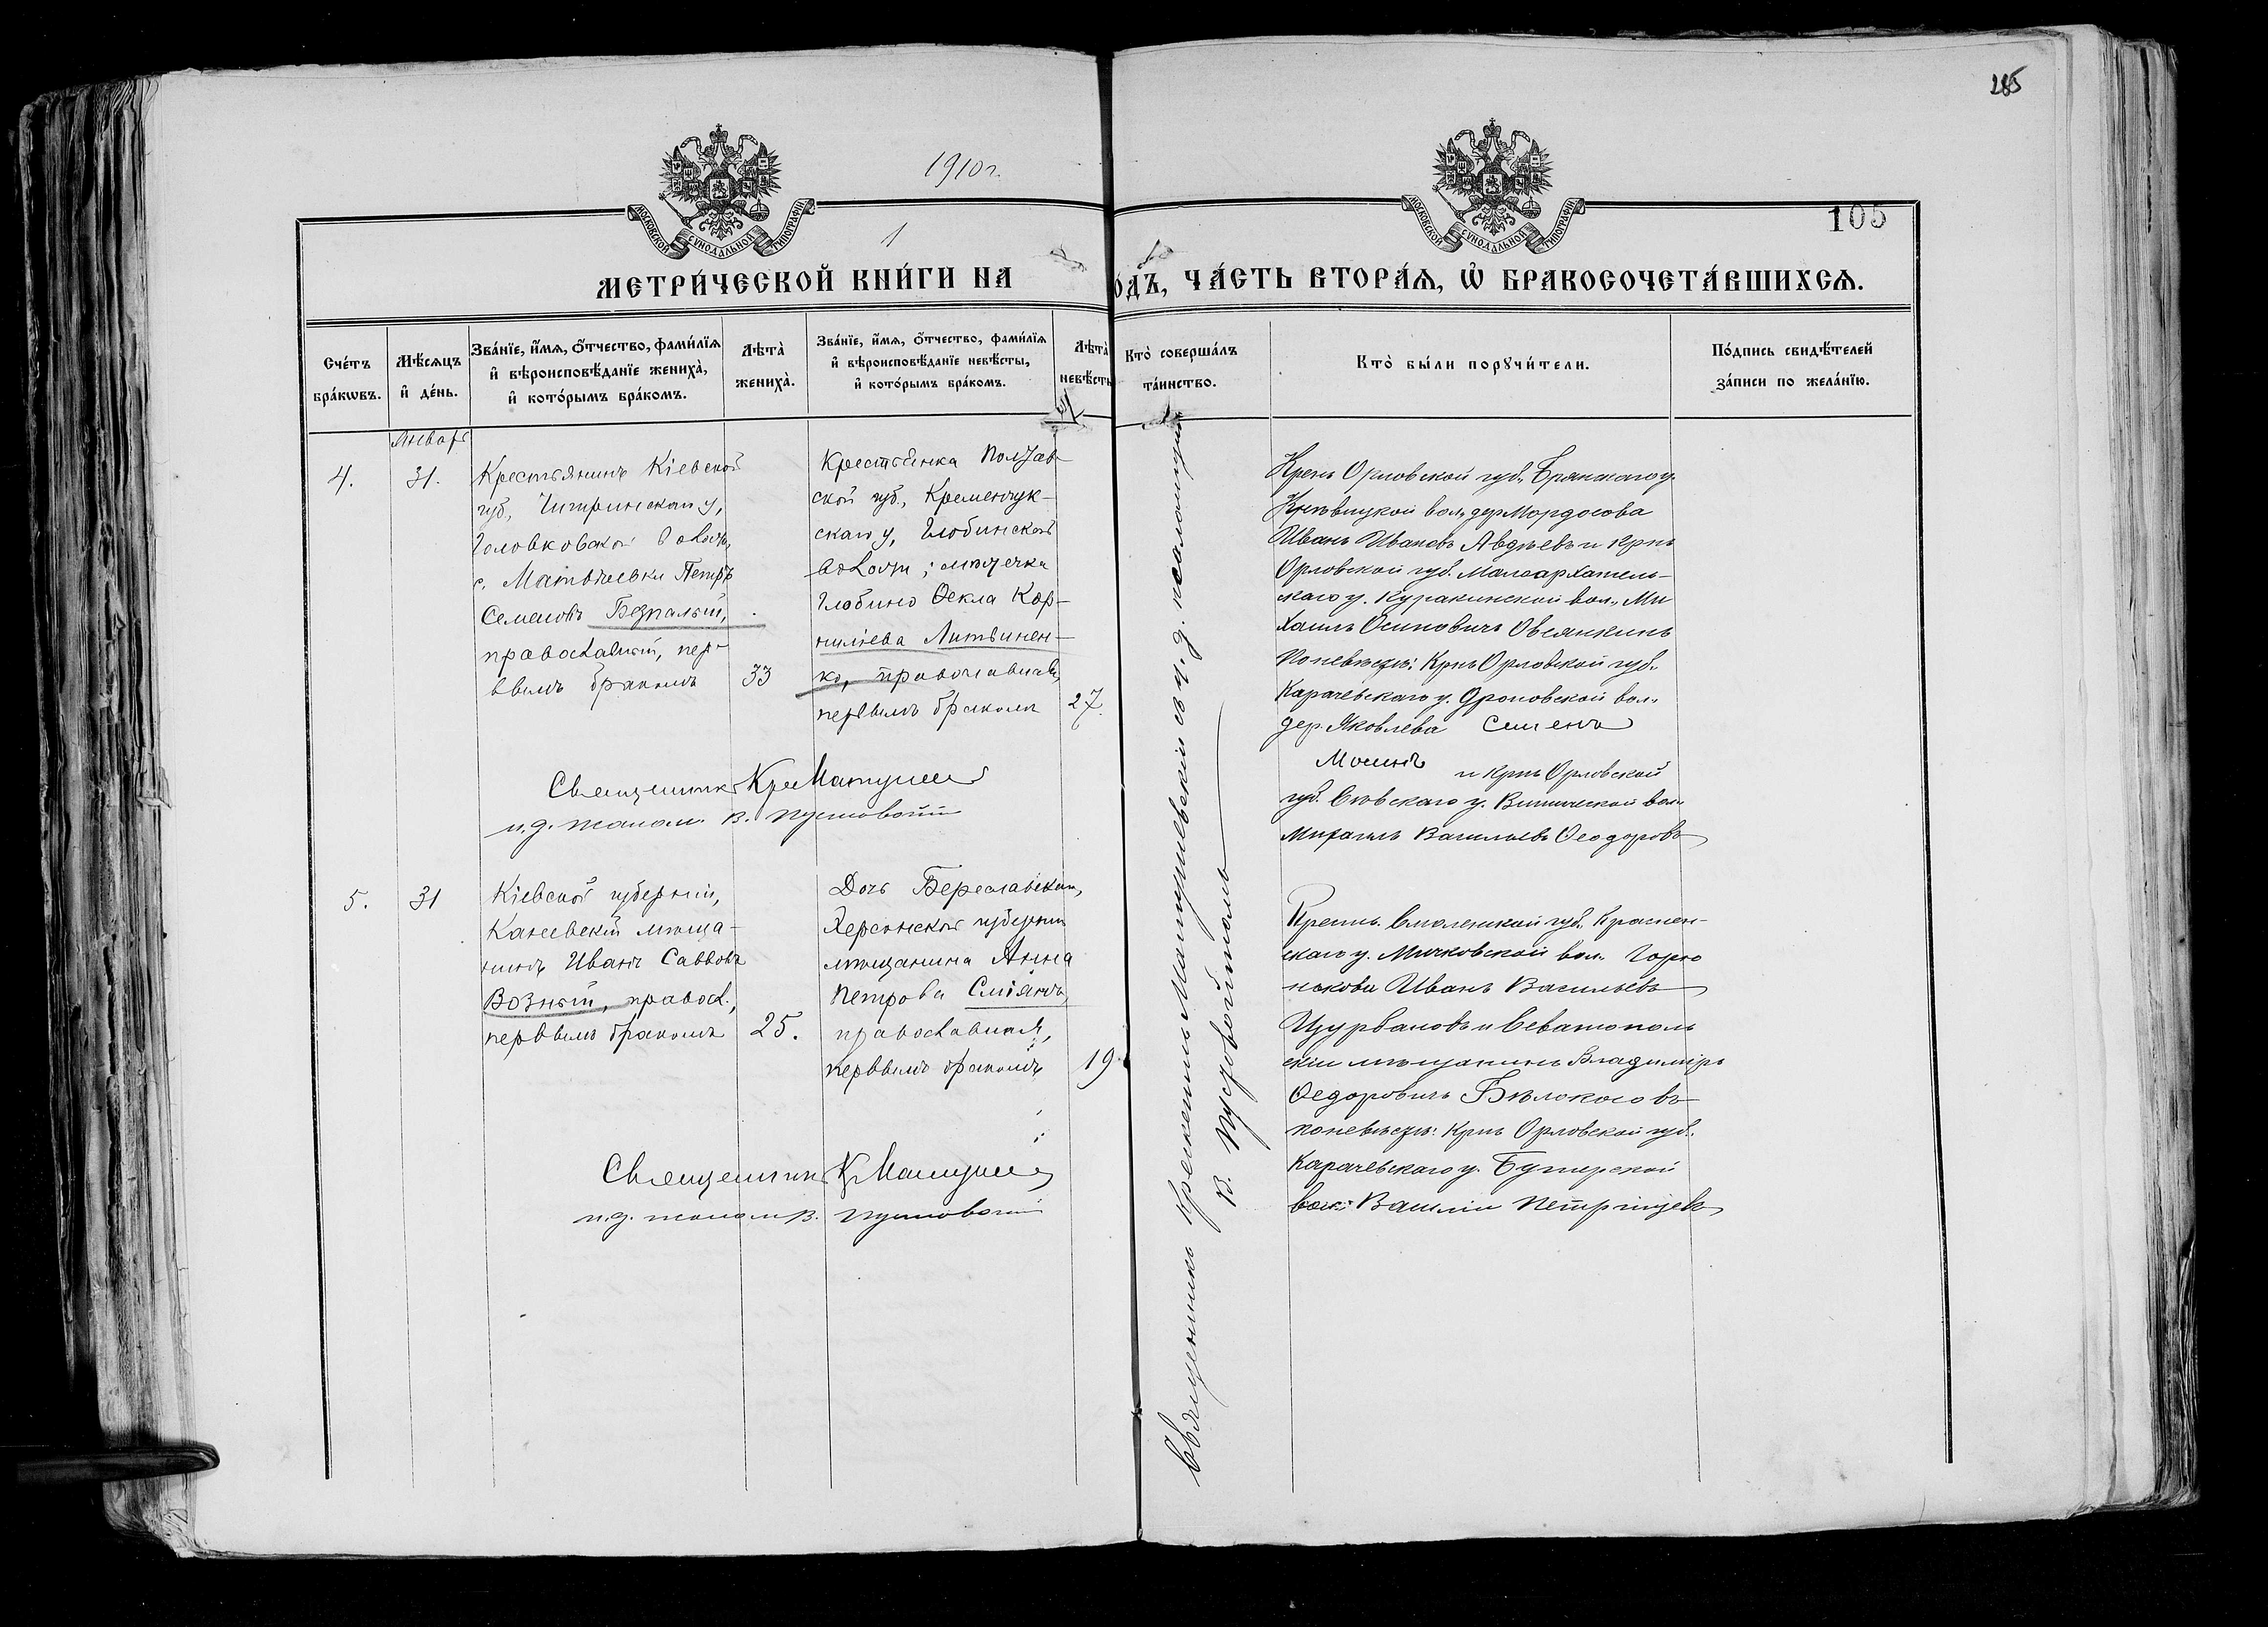 285
1910 г.
105
1
МОСКОВСКОЙ СѴНОДАЛЬНОЙ ТИПОГРАФІИ
МОСКОВСКОЙ СѴНОДАЛЬНОЙ ТИПОГРАФІИ
МЕТРИ́ЧЕСКОЙ КНИ́ГИ НА
О́ДЪ, ЧА́СТЬ ВТОРА́Ѧ, Ѡ҆ БРАКОСОЧЕТА́ВШИХСѦ.
Сче́тъ бра́кѡвъ.
Мѣ́сѧцъ и҆ де́нь.
Зва́нїе, и҆́мѧ, ѻ҆́тчество, фами́лїѧ и҆ вѣроисповѣ́данїе жениха̀, и҆ кото́рымъ бра́комъ.
Лѣта̀ жениха̀.
Зва́нїе, и҆́мѧ, ѻ҆́тчество, фами́лїѧ и҆ вѣроисповѣ́данїе невѣ́сты, и҆ кото́рымъ бра́комъ.
Лѣта̀ невѣ́сты
Кто̀ соверша́лъ та́инство.
Кто̀ бы́ли порꙋчи́тели.
По́дпись свидѣ́телей за́писи по жела́нїю.
Январь
4.
31.
Крестьянинъ Кіевской
губ., Чигринскаго у,
Головковской волости,
с. Матвѣевки Петръ
Семеновъ Безпалый,
православный, пер-
вымъ бракомъ
33
Крестьянка Полтав-
ской губ., Кременчук-
скаго у, Глобинской
волости, мѣстечка
Глобино Ѳекла Кор-
нилiева Литвинен-
ко, православная,
первымъ бракомъ
27.
Священникъ Матушев
и. д. псалом. В. Пустовойт
Священникъ Крискентъ Матушевскій и и. д. псаломщика
В. Пустовойтполь
Крест. Орловской губ. Брянскаго у.
вол. дер. Мордосова
Иванъ Ивановъ Авдѣевъ и крнъ
Орловской губ. Малоархангель-
скаго у. Куракинской вол., Ми
хаилъ Осиповичъ Овсянкинъ
Поневѣстѣ: Крнъ Орловской губ.
Карачевскаго у. Дроновской вол.
дер. Яковлева Семенъ
Мосинъ
и крнъ Орловской
губ. Сѣвскаго у. вол.
Михаилъ Васильевъ Ѳеодоровъ
5.
31
Кіевской губерніи,
Каневскій мѣща-
нинъ Иванъ Саввовъ
Возный, правосл.,
первымъ бракомъ
25.
Дочь Береславскаго,
Херсонской губерніи
мѣщанина Анна
Петрова Сміянъ,
православная,
первымъ бракомъ
19
Священникъ К Матушев
и. д. псалом В. Пустовойт
Крестъ. Смоленской губ. Краснен-
скаго у. вол.
Иванъ Васильевъ
Цурбановъ и Севастополь
скій мѣщанинъ Владиміръ
Ѳедоровичъ Бѣлокосовъ
поневѣстѣ: крнъ Орловской губ.
Карачевскаго у. Бутырской
вол. Василій Петрищевъ